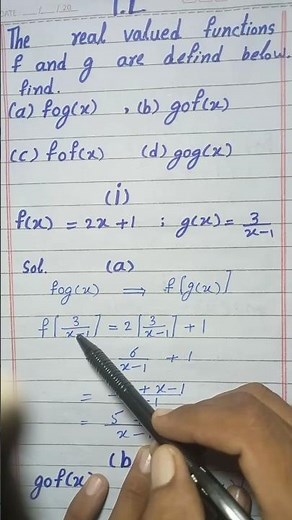 1.2
The real valued functions
f and g are defind below.
find.
(a) fog(x) , (b) gof(x)
(c) fof(x) (d) gog(x)
(i)
f(x) = 2x+1 ; g(x) = 3/x-1
Sol. (a)
fog(x) ⟹ f[g(x)]
f[3/x-1] = 2[3/x-1] + 1
6/x-1 + 1
= + x-1
= 5
x-
(b
gof(x)